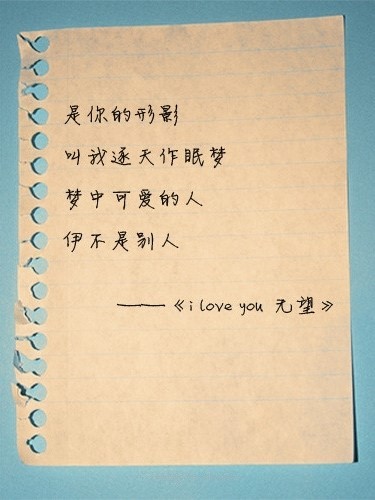 是你的形影
叫我逐天作眠梦
梦中可爱的人
伊不是别人
——《i love you 无望》